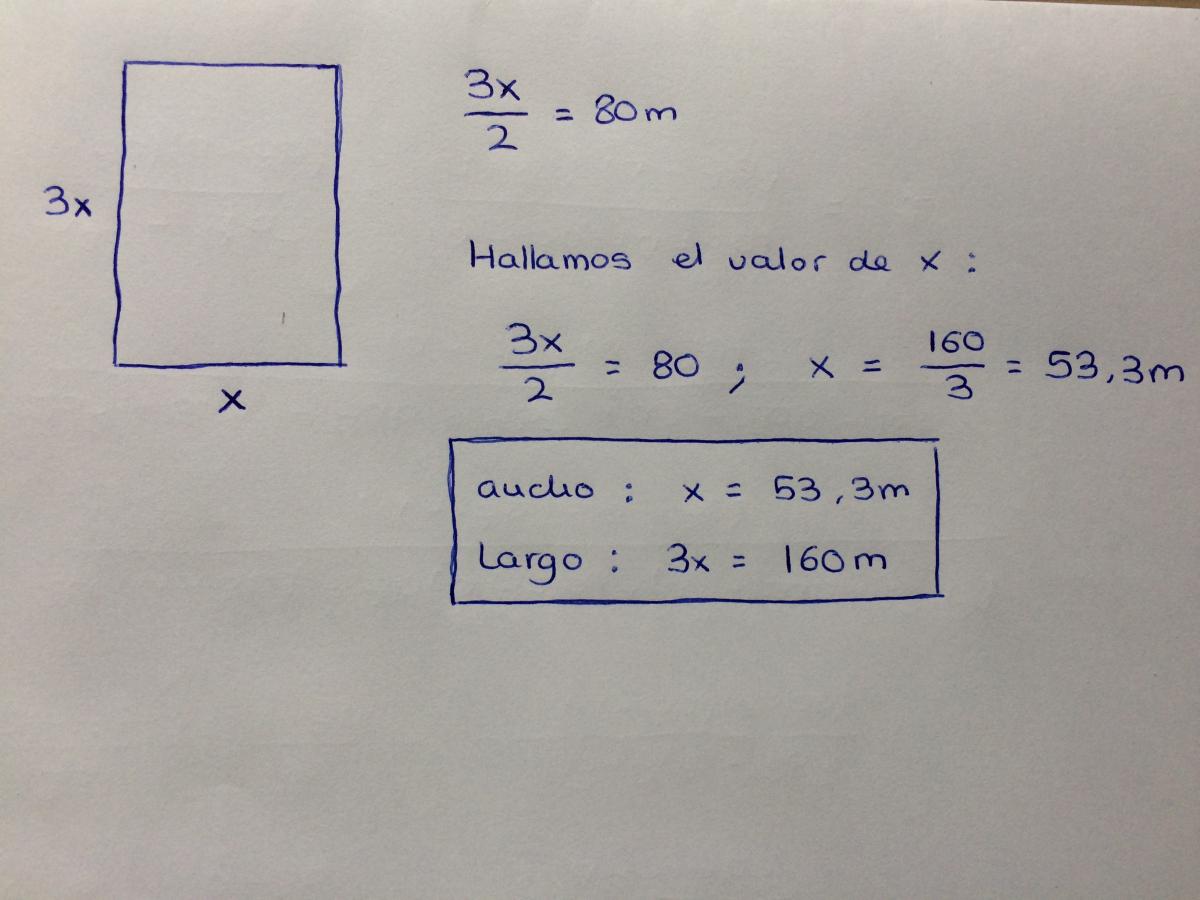 3x
x
3x/2 = 80m
Hallamos el valor de x :
3x/2 = 80 ; x = 160/3 = 53,3m
ancho : x = 53,3m
Largo : 3x = 160m